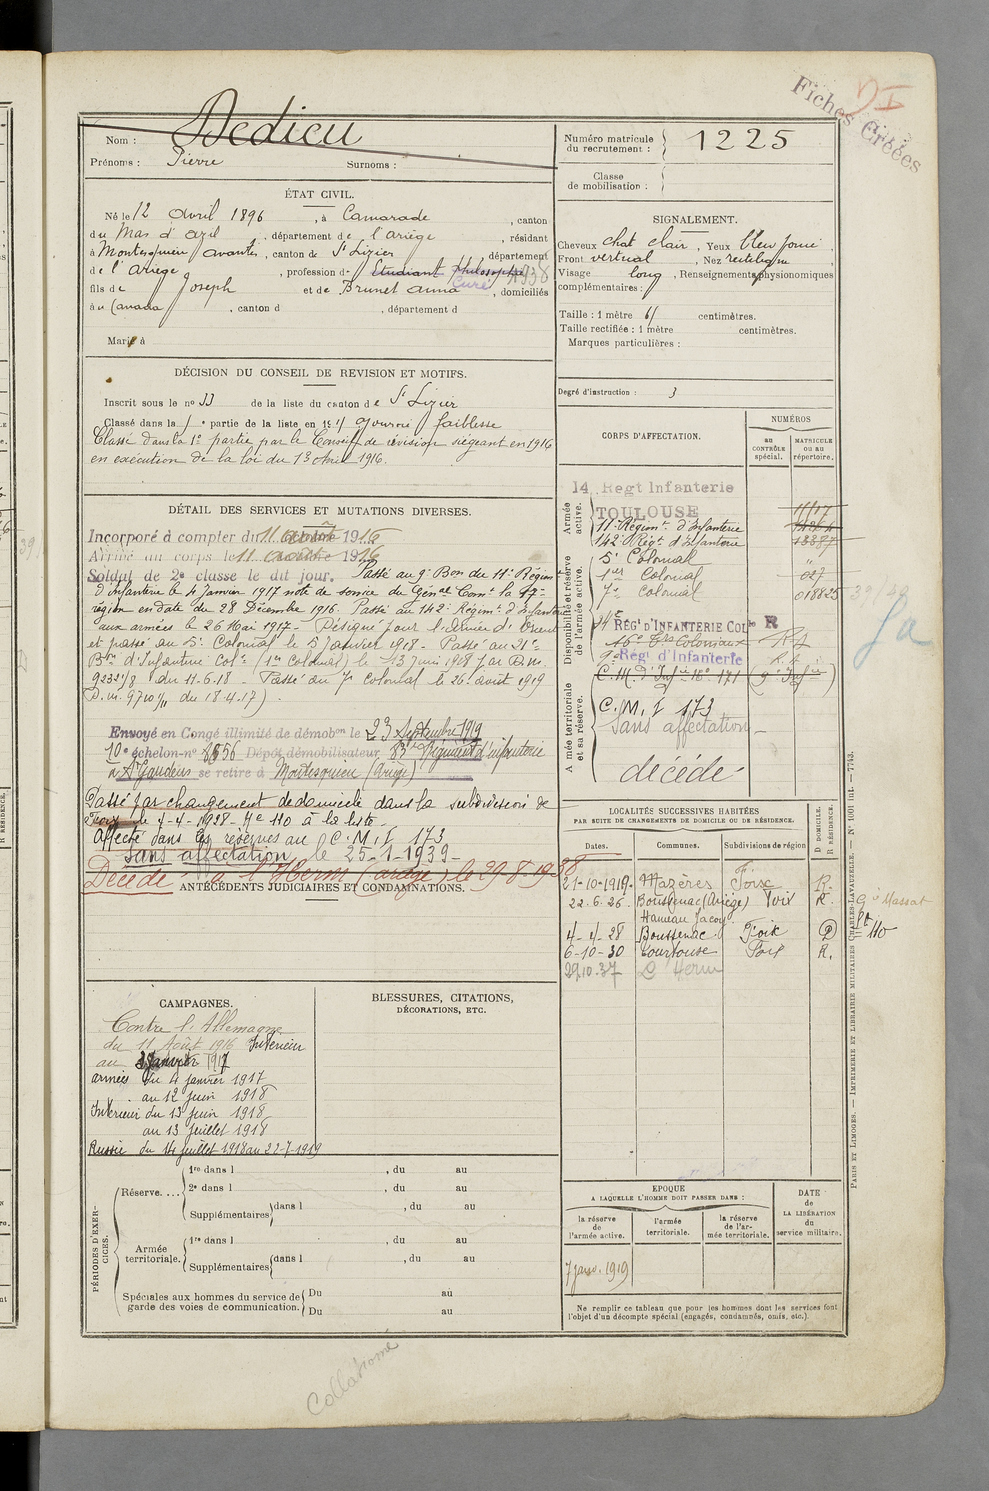 Fiches Créées
Nom : Dedieu
Prénoms : Pierre Surnoms :
Numéro matricule du recrutement : 1225
Classe de mobilisation :
ÉTAT CIVIL.
Né le 12 avril 1896, à Camarade, canton
du Mas d'azil, département de l'ariège, résidant
à Montesquieu avantès, canton de St Lizier département
de l'Ariège, profession de Etudiant philosophe Curé
fils de Joseph et de Brunet anna, domiciliés
à Camara, canton d , département d
Marié à
SIGNALEMENT.
Cheveux chat clair, Yeux bleu jaune,
Front vertical, Nez rectiligne
Visage long, Renseignements physionomiques
complémentaires :
Taille : 1 mètre 61 centimètres.
Taille rectifiée : 1 mètre centimètres.
Marques particulières :
Degré d'instruction : 3
DÉCISION DU CONSEIL DE REVISION ET MOTIFS.
Inscrit sous le no 33 de la liste du canton de St Lizier
Classé dans la partie de la liste en 19 ajourné faiblesse
Classé dans la 1e partie par le Conseil de révision siégeant en 1916
en exécution de la loi du 13 Avril 1916.
DÉTAIL DES SERVICES ET MUTATIONS DIVERSES.
Incorporé à compter du 11 août 1916
Arrivé au corps le 11 août 1916
Soldat de 2e classe le dit jour. Passé au 9e Bon du 11e Régiment
d'infanterie le 4 Janvier 1917 note de service du Génal Comt la 17e
région en date du 28 Décembre 1916. Passé au 142e Régimt d'Infanterie
aux armées le 26 Mai 1917 - Désigné pour l'armée d'Orient
et passé au 5e Colonial le 5 Janvier 1918 - Passé au 21e
Bon d'Infanterie Colle (1er Colonial) le 13 juin 1918 par D.M.
9232 1/8 du 11-6-18 - Passé au 7e Colonial le 26 août 1919
D.M. 9710 du 18.4.17).
Envoyé en Congé illimité de démobon le 23 Septembre 1919
10e échelon no Dépôt démobilisateur 83e Régiment d'infanterie
à St Gaudens se retire à Montesquieu (Ariège)
Passé par changement de domicile dans la subdivision de
Foix le 4-4-1928 - No 110 à la liste -
Affecté dans les réserves au C.M.I 173
Sans affectation le 25-1-1939 -
Décédé à l'Herm (ariège) le 29-8-1938
ANTÉCÉDENTS JUDICIAIRES ET CONDAMNATIONS.
CORPS D'AFFECTATION.
NUMÉROS
au CONTRÔLE spécial.
MATRICULE ou au répertoire.
Armée active.
14 Regt Infanterie
TOULOUSE
11e Régimt d'Infanterie
142e Régt d'Infanterie
Disponibilité et réserve de l'armée active.
5e Colonial
1er Colonial
7e Colonial 018825
RÉGt D'INFANTERIE COLe R
16e Colonial
Régt d'Infanterie
Armée territoriale et sa réserve.
C.M. d'Infie no 171 (9e Infie)
C.M.I 173
Sans affectation -
décédé -
LOCALITÉS SUCCESSIVES HABITÉES
PAR SUITE DE CHANGEMENTS DE DOMICILE OU DE RÉSIDENCE.
Dates. Communes. Subdivisions de région D DOMICILE. R RÉSIDENCE.
21-10-1919 - Mazères Foix R.
22.6.26. Boussenac (Ariège) Foix R.
Hameau Jacoy
4-4-28 Boussenac Foix D
6-10-30 Tourtouse Foix R.
29.10.37 L'Herm
à Massat
110
CAMPAGNES.
Contre l'Allemagne
du 11 Août 1916 Intérieur
au 3 Janvier 1917
armées du 4 janvier 1917
au 12 juin 1918
Intérieur du 13 juin 1918
au 13 juillet 1918
Russie du 14 juillet 1918 au 22-7-1919
BLESSURES, CITATIONS,
DÉCORATIONS, ETC.
PÉRIODES D'EXERCICES.
Réserve....
1re dans l , du au
2e dans l , du au
Supplémentaires dans l , du au
Armée territoriale.
1re dans l , du au
Supplémentaires dans l , du au
Spéciales aux hommes du service de garde des voies de communication.
Du au
Du au
EPOQUE
A LAQUELLE L'HOMME DOIT PASSER DANS :
la réserve de l'armée active.
l'armée territoriale.
la réserve de l'armée territoriale.
DATE de LA LIBÉRATION du service militaire.
7 janv. 1919
Ne remplir ce tableau que pour les hommes dont les services font
l'objet d'un décompte spécial (engagés, condamnés, omis, etc.).
PARIS ET LIMOGES. — IMPRIMERIE ET LIBRAIRIE MILITAIRES CHARLES-LAVAUZELLE. — No 1001 int. — 7743.